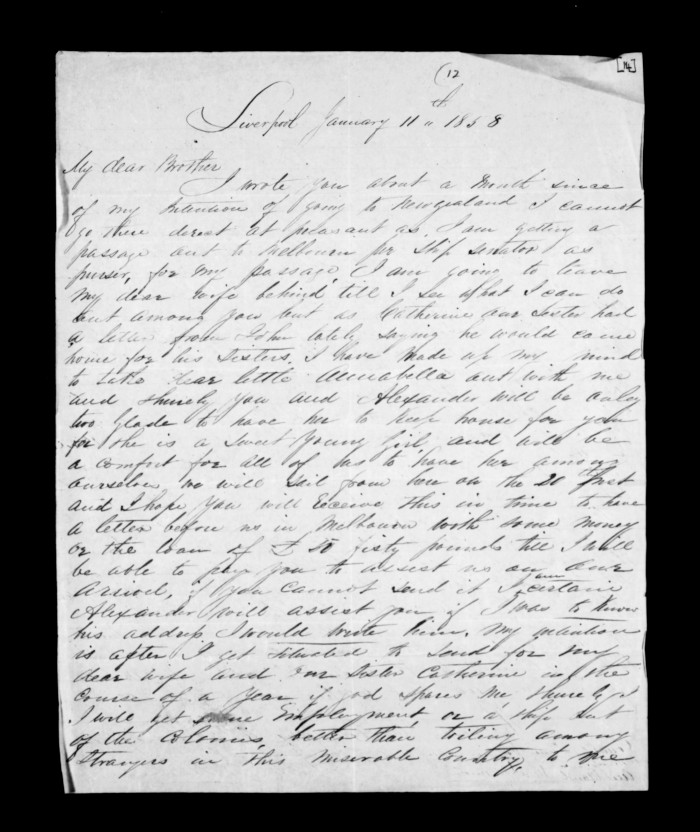 (12
[14]
Liverpool January 11 " th 1858
My dear Brother
I wrote you about a Month since
of my intention of going to Newzealand I cannot
go there direct at preasant as I am getting a
passage out to Melbourn per Ship Senator as
purser, for my passage, I am going to leave
my dear wife behind till I see what I can do
out among you but as Catherine our Sister had
a letter from John lately saying he would come
home for his Sisters. I have made up my mind
to take dear little Annabella out with me
and you and Alexander will be only
two glade to have her to keep house for you
for she is a Sweet young girl and will be
a comfort for all of us to have her among
ourselves, we will Sail from here on the 20th
and I hope you will receive this in time to have
a letter before us in Melbourn with some money
or the loan of £50 fifty pounds till I will
be able to pay you to assist us on our
arrival, if you cannot send it I am certain
Alexander will assist you if I was to know
his address I would write him. My intention
is after I get situated to Send for my
dear wife and our Sister Catherine in the
course of a year if god spares me
I will get some Employment or a ship out
of the Colonies better than toiling among
Strangers in this Miserable Country, to me